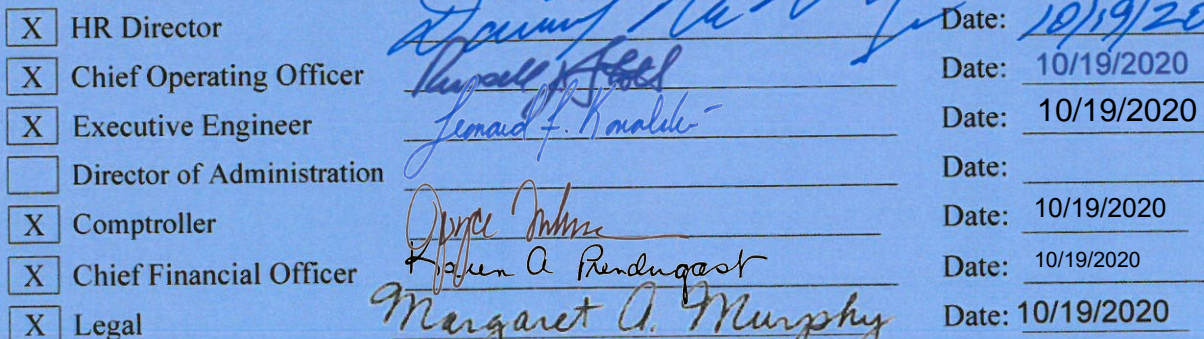 X HR Director Date: 10/19/20
X Chief Operating Officer Date: 10/19/2020
X Executive Engineer Leonard F. Kowalski Date: 10/19/2020
Director of Administration Date:
X Comptroller Joyce Date: 10/19/2020
X Chief Financial Officer Karen A Prendergast Date: 10/19/2020
X Legal Margaret A. Murphy Date: 10/19/2020